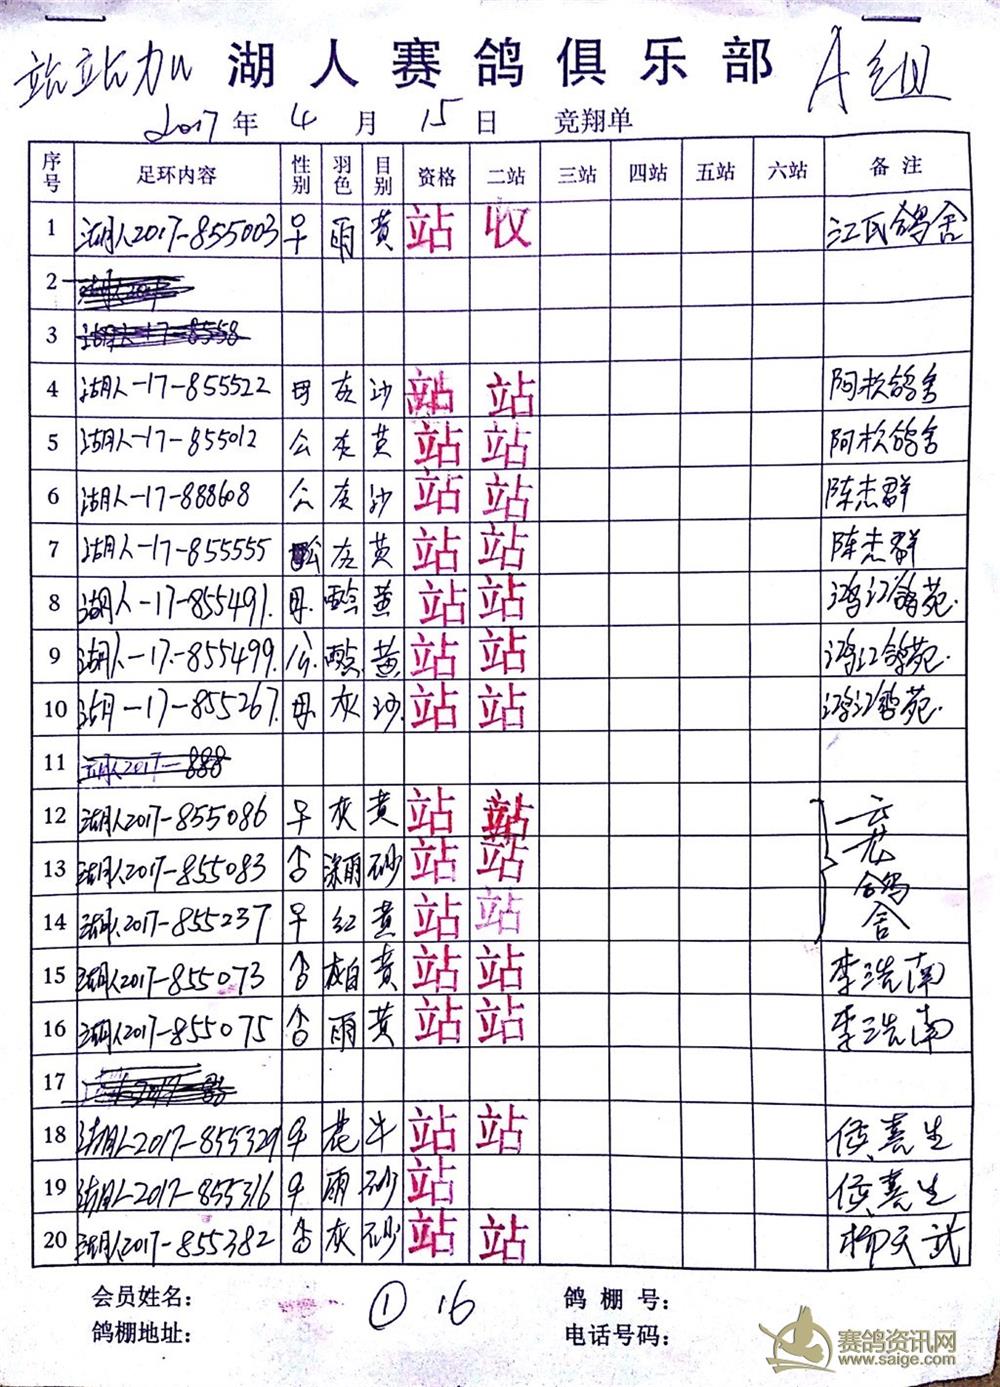 站站加 湖人赛鸽俱乐部 A组
2017年 4月 15日 竞翔单
序号 足环内容 性别 羽色 目别 资格 二站 三站 四站 五站 六站 备注
1 湖人2017-855003 早 雨 黄 站 收 江氏鸽舍
2
3 湖人-17-8558
4 湖人-17-855522 母 灰 沙 站 站 阿松鸽舍
5 湖人-17-855012 公 灰 黄 站 站 阿松鸽舍
6 湖人-17-888608 公 灰 沙 站 站 陈杰群
7 湖人-17-855555 公 灰 黄 站 站 陈杰群
8 湖人-17-855491. 母. 黄 站 站 鸿江鸽苑.
9 湖人-17-855499. 公. 黄 站 站 鸿江鸽苑.
10 湖-17-855267. 母. 灰 沙. 站 站 鸿江鸽苑.
11 湖人2017-888
12 湖人2017-855086 早 灰 黄 站 站 云龙鸽舍
13 湖人2017-855083 合 深雨 砂 站 站
14 湖人2017-855237 早 红 黄 站 站
15 湖人2017-855073 合 黄 站 站 李浩南
16 湖人2017-855075 合 雨 黄 站 站 李浩南
17
18 湖人2017-855329 早 花 牛 站 站 侯嘉生
19 湖人2017-855316 早 雨 砂 站 侯嘉生
20 湖人2017-855382 合 灰 砂 站 站 杨天武
会员姓名： ① 16 鸽棚号：
鸽棚地址： 电话号码：
赛鸽资讯网
www.saige.com